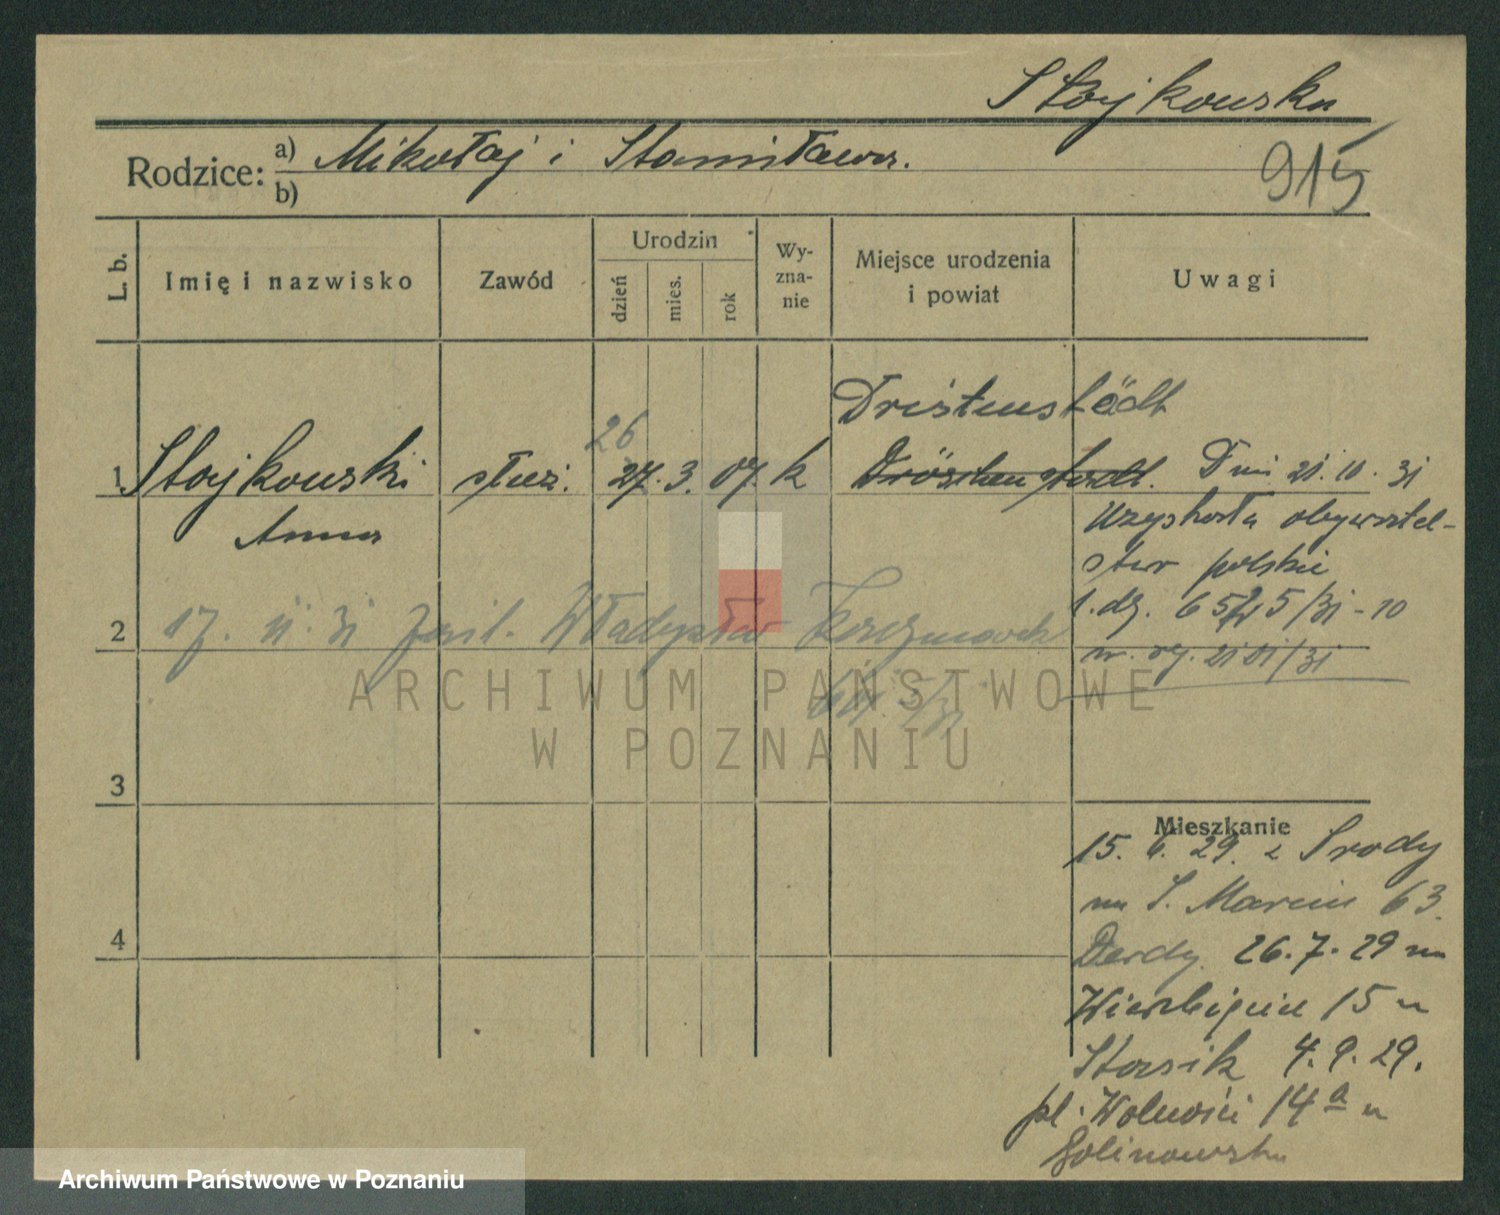 Stojkowska
Rodzice: a) Mikołaj i Stanisława.
b)
915
L. b.
Imię i nazwisko
Zawód
Urodzin
dzień
mies.
rok
Wy-
zna-
nie
Miejsce urodzenia
i powiat
Uwagi
26
1 Stojkowski służ. 27. 3. 07 k
Anna
Dnia 21.10.31
uzyskała obywatel-
stwo polskie
l. dz. /31-10
nr. 2101/31
2 17. 11. 31 Władysław
3
4
Mieszkanie
15. 6. 29. z Środy
na S. Marcin 63.
26.7.29 na
Wierzbięcice 15 u
Stasik 4.9.29.
pl. Wolności 14a u
Golinowska
ARCHIWUM PAŃSTWOWE
W POZNANIU
Archiwum Państwowe w Poznaniu